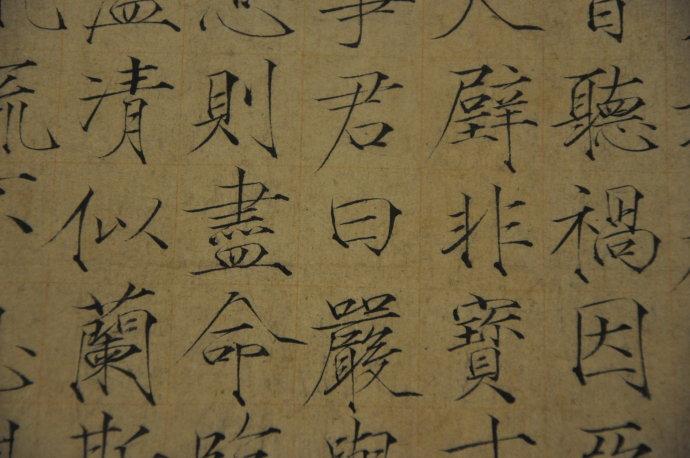 習聽禍因惡
尺璧非寶寸
事君曰嚴與
忠則盡命臨
溫清似蘭斯
流不息